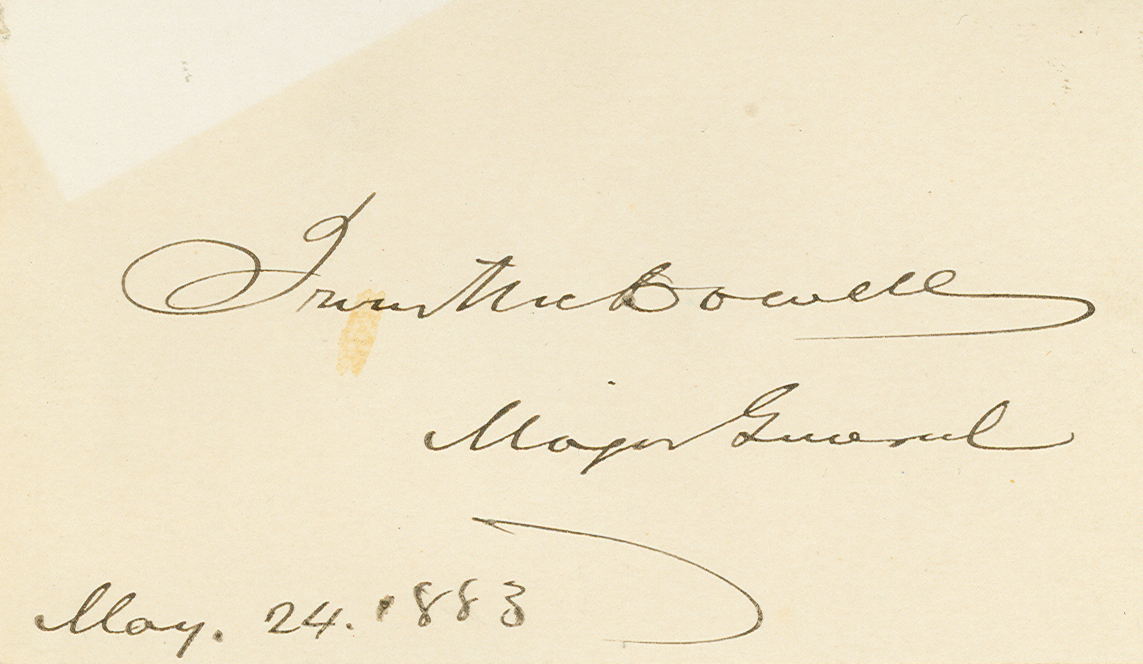 Irvin McDowell
Major General
May. 24. 1883